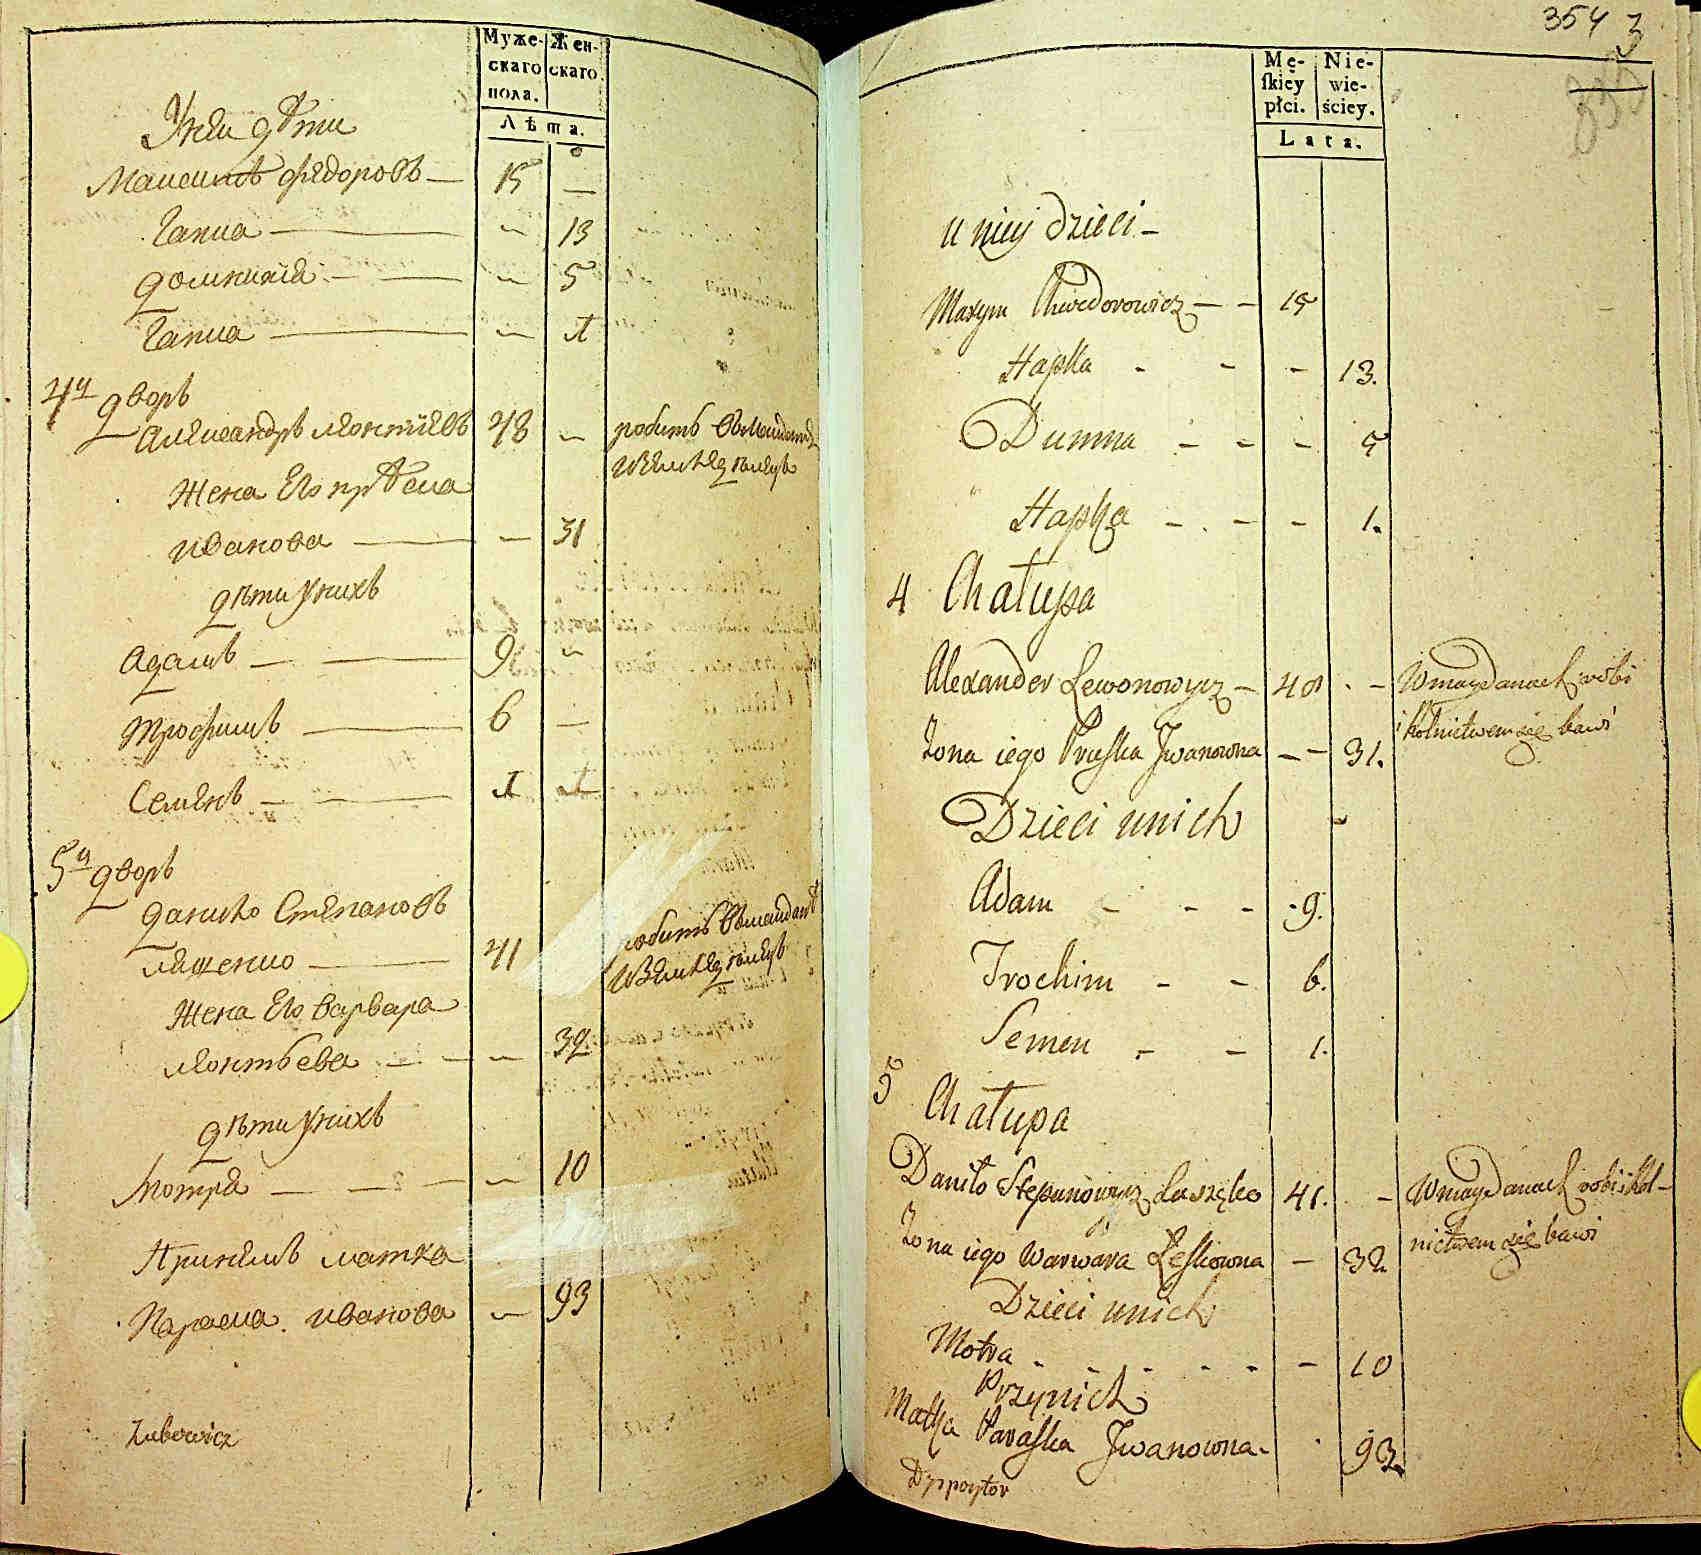 Муже-
скаго
пола.
Жен-
скаго.
Лѣта.
Унеи дѣти
Максимъ Федоровъ — 15 —
Гапка — 13
Домникія — 5
Гапка — 1
4й дворъ
Александръ Леонтіевъ 48 — робитъ в майданѣ
и землѣделецъ
Жена Его прѣска
иванова — 31
дѣти унихъ
Адамъ — 9
Трофимъ — 6 —
Семенъ — 1
5й дворъ
Данило Степановъ
Ляшенко — 41 робитъ в майданѣ
и землѣделецъ
Жена Его Варвара
Леонтьева — 32
дѣти унихъ
Мотря — 10
При немъ матка
Параска иванова — 93
Zubowicz
354 3
Mę-
ſkiéy
płci.
Nie-
wie-
ściey.
Lata.
u niey dzieci -
Maxym Chwedorowicz - - 15
Hapka - - - 13.
Dumna - - - 5
Hapka - - - 1.
4 Chałupa
Alexander Lewonowycz - 48 - Wmaydanach robi
i Rolnictwem się bawi
Żona iego Praska Jwanowna - - 31.
Dzieci unich
Adam - - - 9.
Trochim - - 6.
Semen - - 1.
5
Chałupa
Daniło Stepanowycz Laszęko 41. - Wmaydanach robi i Rol-
nictwem się bawi
Żona iego Warwara Leskowna - 32
Dzieci unich
Motra - - - - - - 10
Przynich
Matka Paraska Jwanowna - 93.